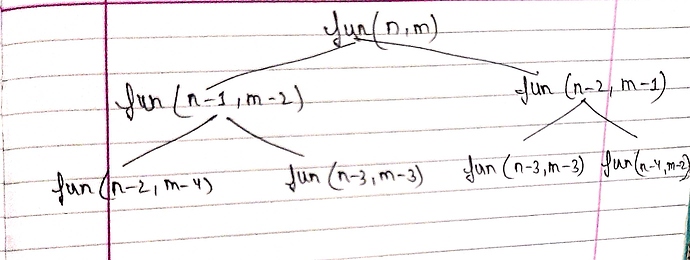 fun(n,m)
fun (n-1, m-2) fun (n-2, m-1)
fun (n-2, m-4) fun (n-3, m-3) fun (n-3, m-3) fun(n-4, m-2)